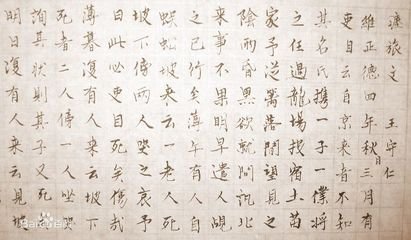 瘞旅文 王守仁
維正德四年秋月三日有
吏目云自京来者不知
其名氏攜一子一僕將
之任過龍場投宿土苗
家予從籬落間望見之
陰雨昏黑欲就問訊北
来事不果明早遣人覘
之已行矣薄午有人自
蜈蚣坡来云一老人死
坡下傍兩人哭之哀予
曰此必吏目死矣傷哉
薄暮復有人来云坡下
死者二人傍一人坐哭
詢其狀則其子又死矣
明日復有人来云見坡
Baidu百科